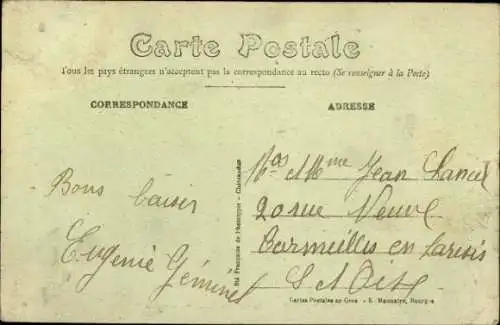 Carte Postale
Tous les pays étrangers n'acceptent pas la correspondance au recto (Se renseigner à la Poste)
CORRESPONDANCE
ADRESSE
Bons baiser
Eugénie Géminel
Sté Française de Phototypie - Châteauroux
et Mme Jean Lancel
20 rue Neuve
Cormeilles en Parisis
S et Oise
Cartes Postales en Gros - E. Maquaire, Bourges